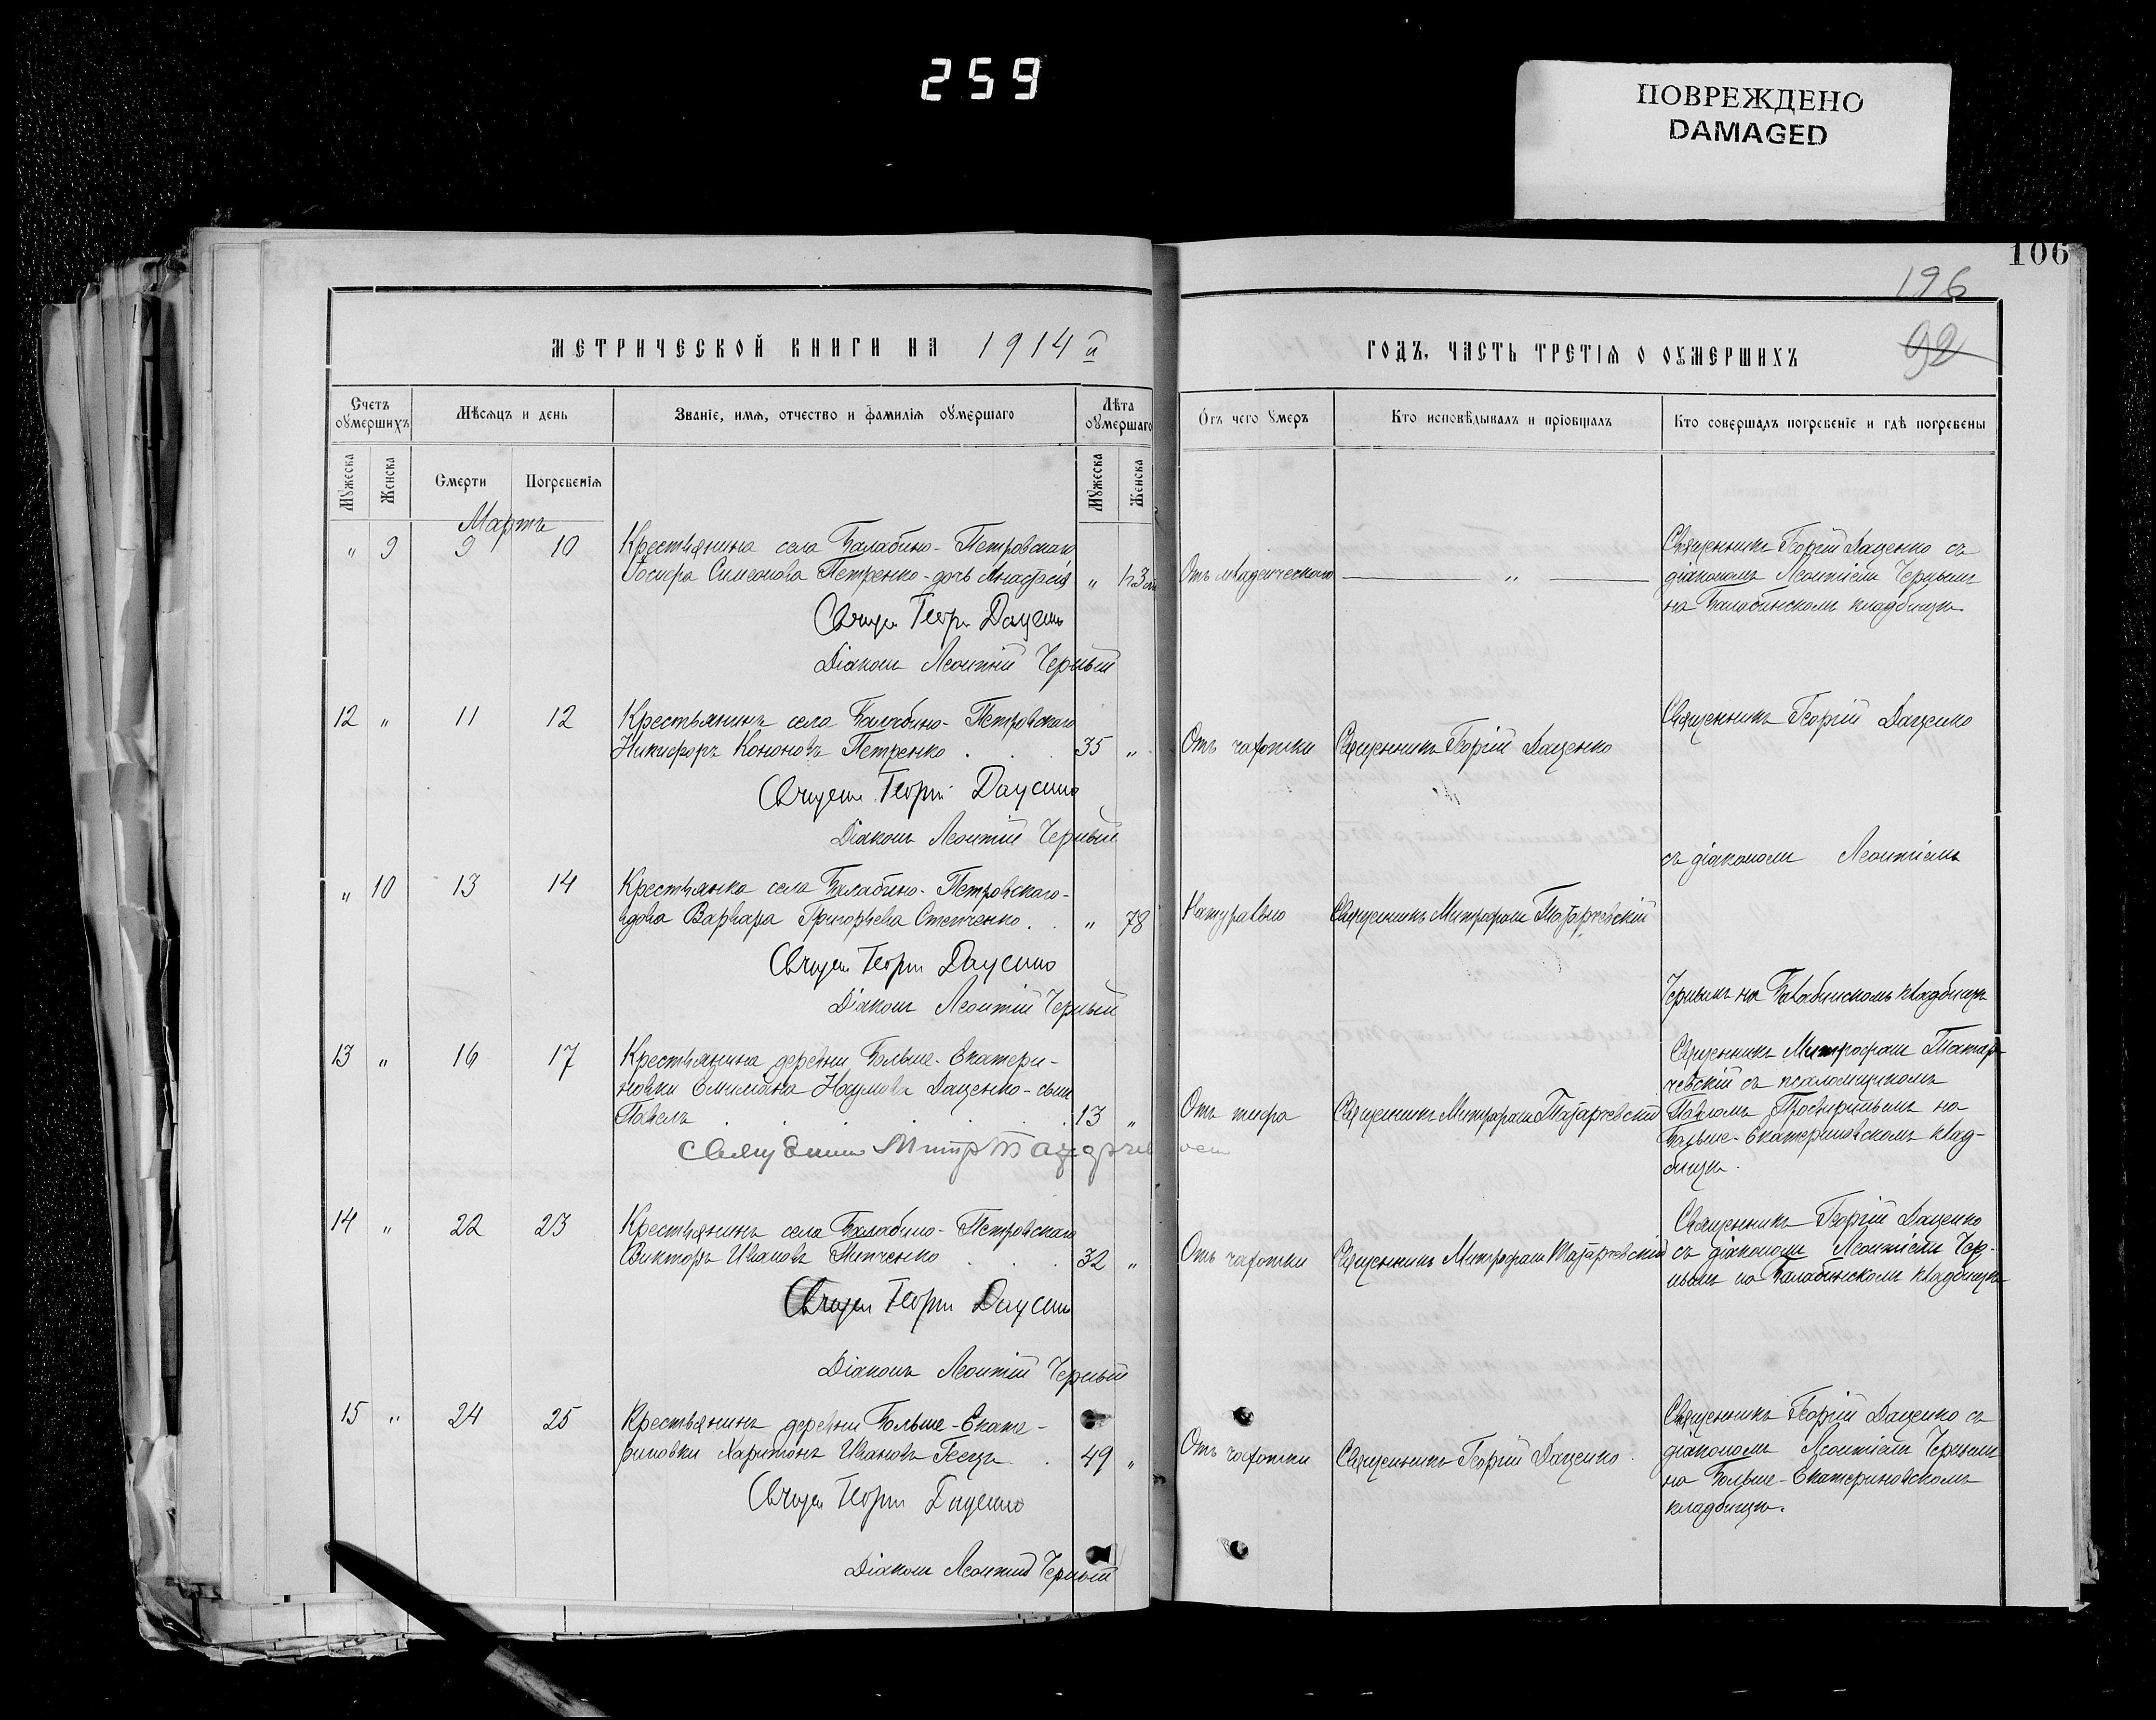 259
ПОВРЕЖДЕНО
DAMAGED
106
196
92
МЕТРИЧЕСКОЙ КНИГИ НА 1914й
ГОДЪ, ЧАСТЬ ТРЕТІЯ О ОУМЕРШИХЪ
Счетъ оумершихъ
Мѣсяцъ и день
Званіе, имя, отчество и фамилія оумершаго
Лѣта оумершаго
Отъ чего умеръ
Кто исповѣдывалъ и пріобщалъ
Кто совершалъ погребеніе и гдѣ погребены
Мужеска
Женска
Смерти
Погребенія
Мужеска
Женска
Мартъ
„ 9 9 10 Крестьянина села Балабино-Петровскаго
Іосифа Симеонова Петренко-дочь Анастасія „
Отъ младенческаго „
Священникъ Георгій Даценко съ
діакономъ Леонтіемъ Чернымъ
на Балабинскомъ кладбищѣ
Діаконъ Леонтій Черный
12 „ 11 12 Крестьянинъ села Балабино-Петровскаго
Никифоръ Кононовъ Петренко 35 „
Отъ чахотки Священникъ Георгій Даценко
Священникъ Георгій Даценко
Діаконъ Леонтій Черный
съ діакономъ Леонтіемъ
„ 10 13 14 Крестьянка села Балабино-Петровскаго-
вдова Варвара Григорьева Степченко „ 78
Натурально Священникъ Митрофанъ Татарчевскій
Діаконъ Леонтій Черный
Чернымъ на Балабинскомъ кладбищѣ
13 „ 16 17 Крестьянина деревни Больше-Екатери-
новки Емиліана Наумова Даценко-сынъ
Павелъ 13 „
Отъ тифа Священникъ Митрофанъ Татарчевскій
Священникъ Митрофанъ Татар-
чевскій съ псаломщикомъ
Павломъ на
Больше-Екатериновскомъ клад-
бищѣ.
14 „ 22 23 Крестьянинъ села Балабино-Петровскаго
Викторъ Ивановъ 32 „
Отъ чахотки Священникъ Митрофанъ Татарчевскій
Священникъ Георгій Даценко
съ діакономъ Леонтіемъ Чер-
нымъ на Балабинскомъ кладбищѣ
Діаконъ Леонтій Черный
15 „ 24 25 Крестьянинъ деревни Больше-Екате-
риновки Харитонъ Ивановъ 49 „
Отъ чахотки Священникъ Георгій Даценко
Священникъ Георгій Даценко съ
діакономъ Леонтіемъ Чернымъ
на Больше-Екатериновскомъ
кладбищѣ.
Діаконъ Леонтій Черный